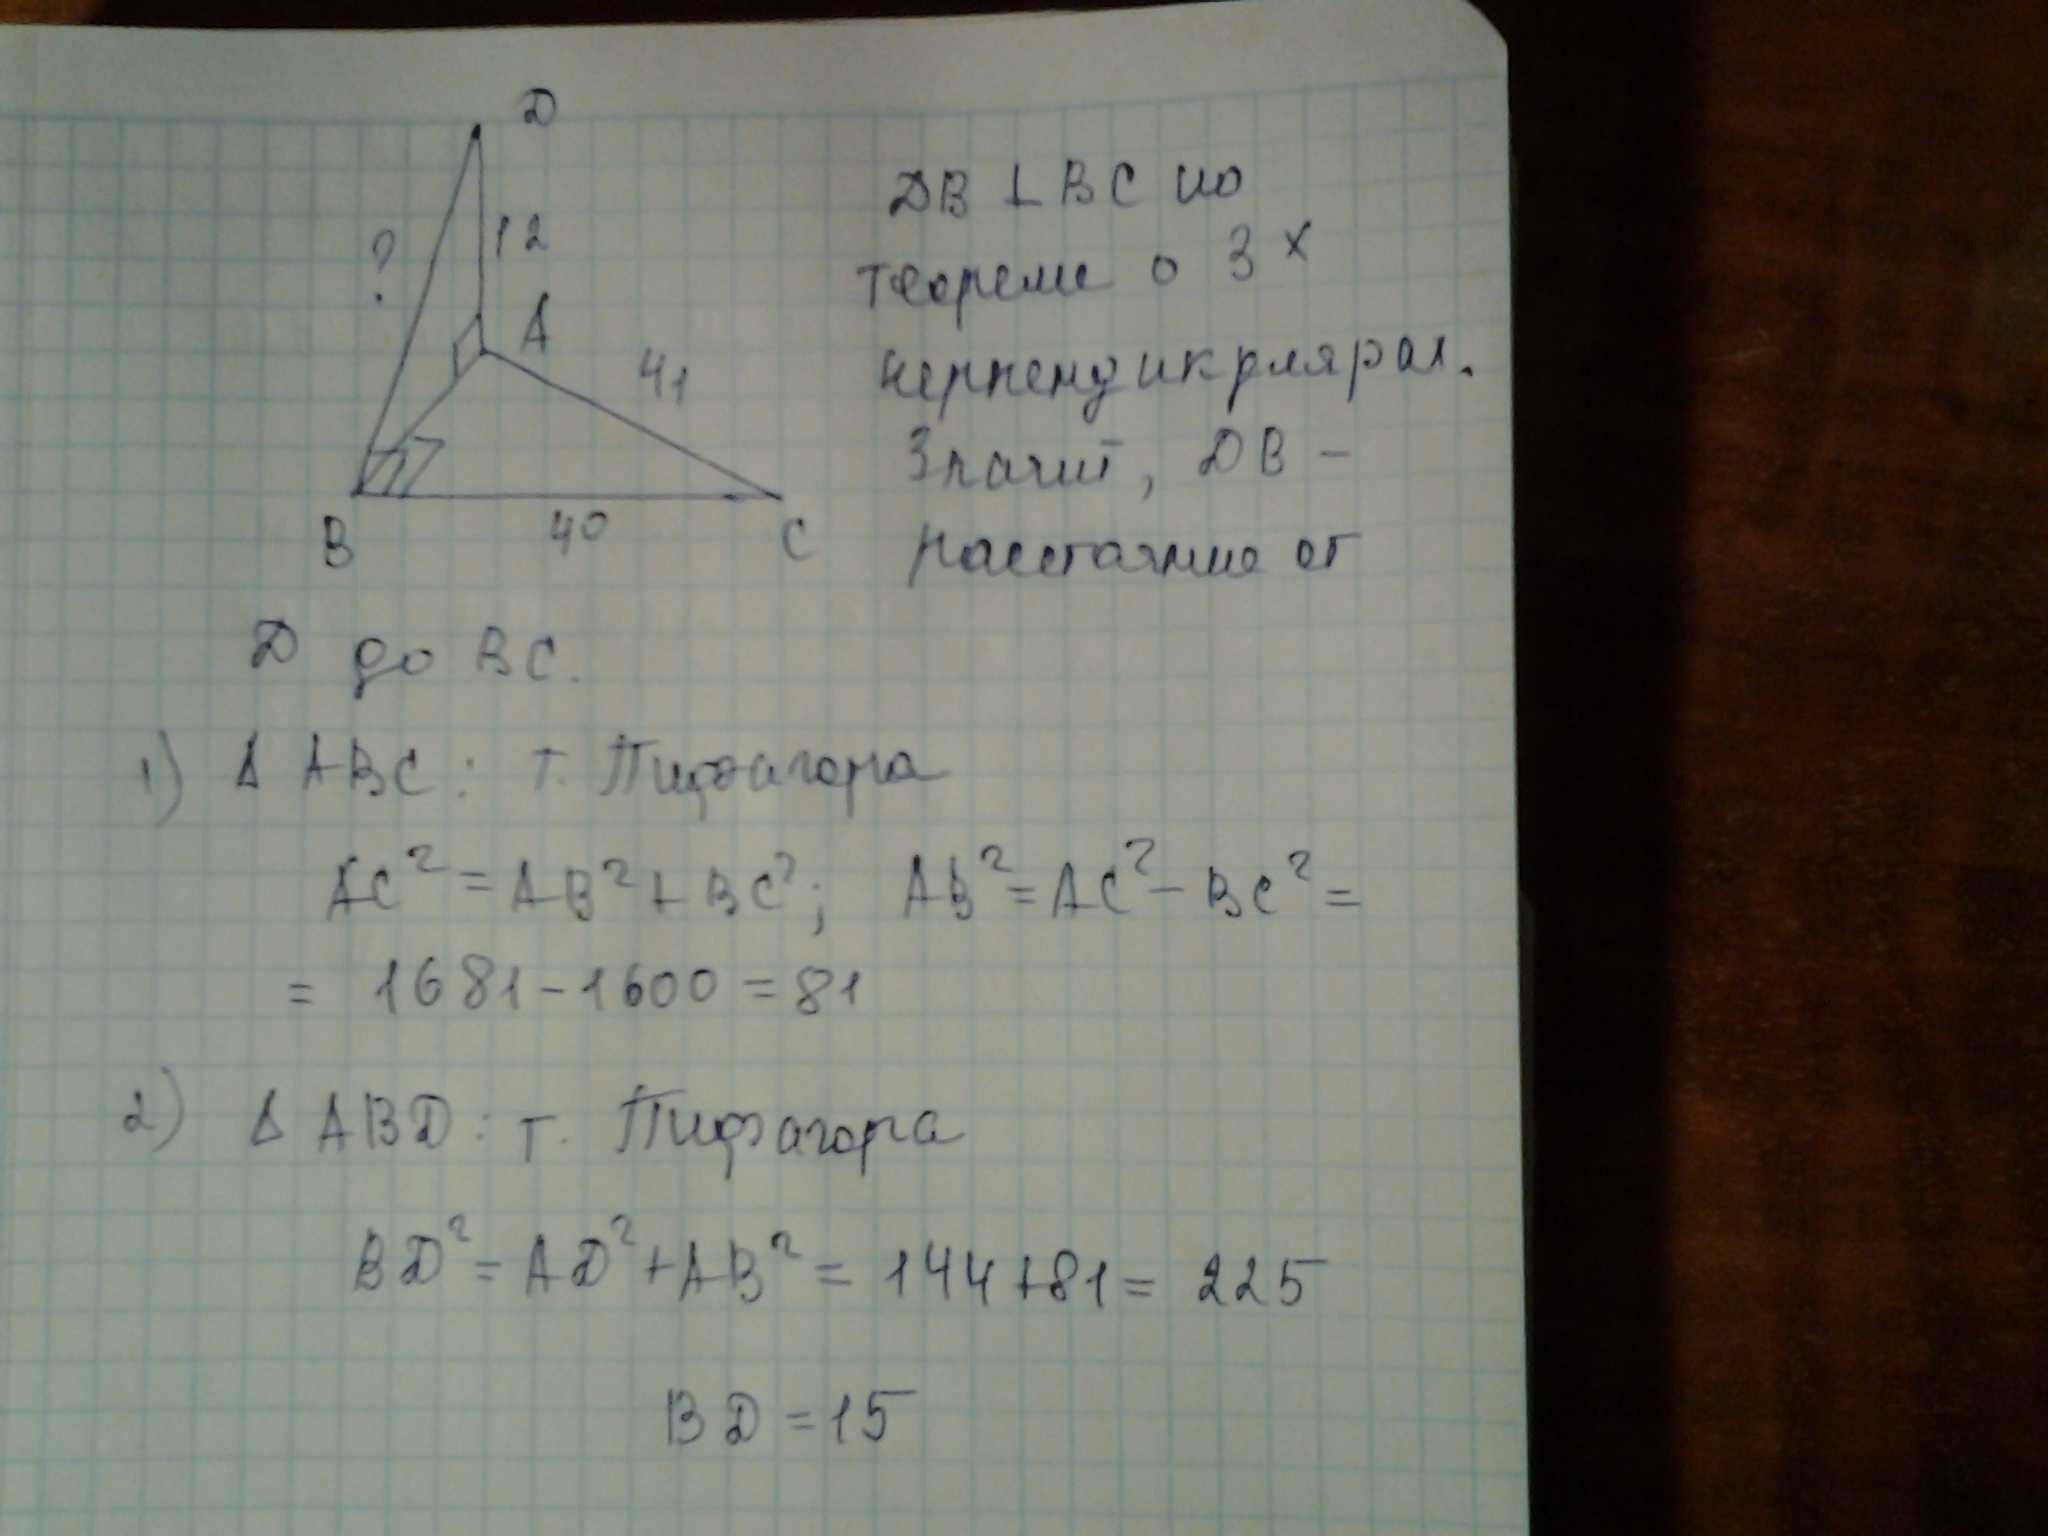 D
DB ⊥ BC по
? 12
теореме о 3х
A
41
перпендикулярах.
Значит, DB –
B 40 C
расстояние от
D до BC.
1) Δ ABC: т. Пифагора
AC² = AB² + BC²; AB² = AC² – BC² =
= 1681 – 1600 = 81
2) Δ ABD: т. Пифагора
BD² = AD² + AB² = 144 + 81 = 225
BD = 15